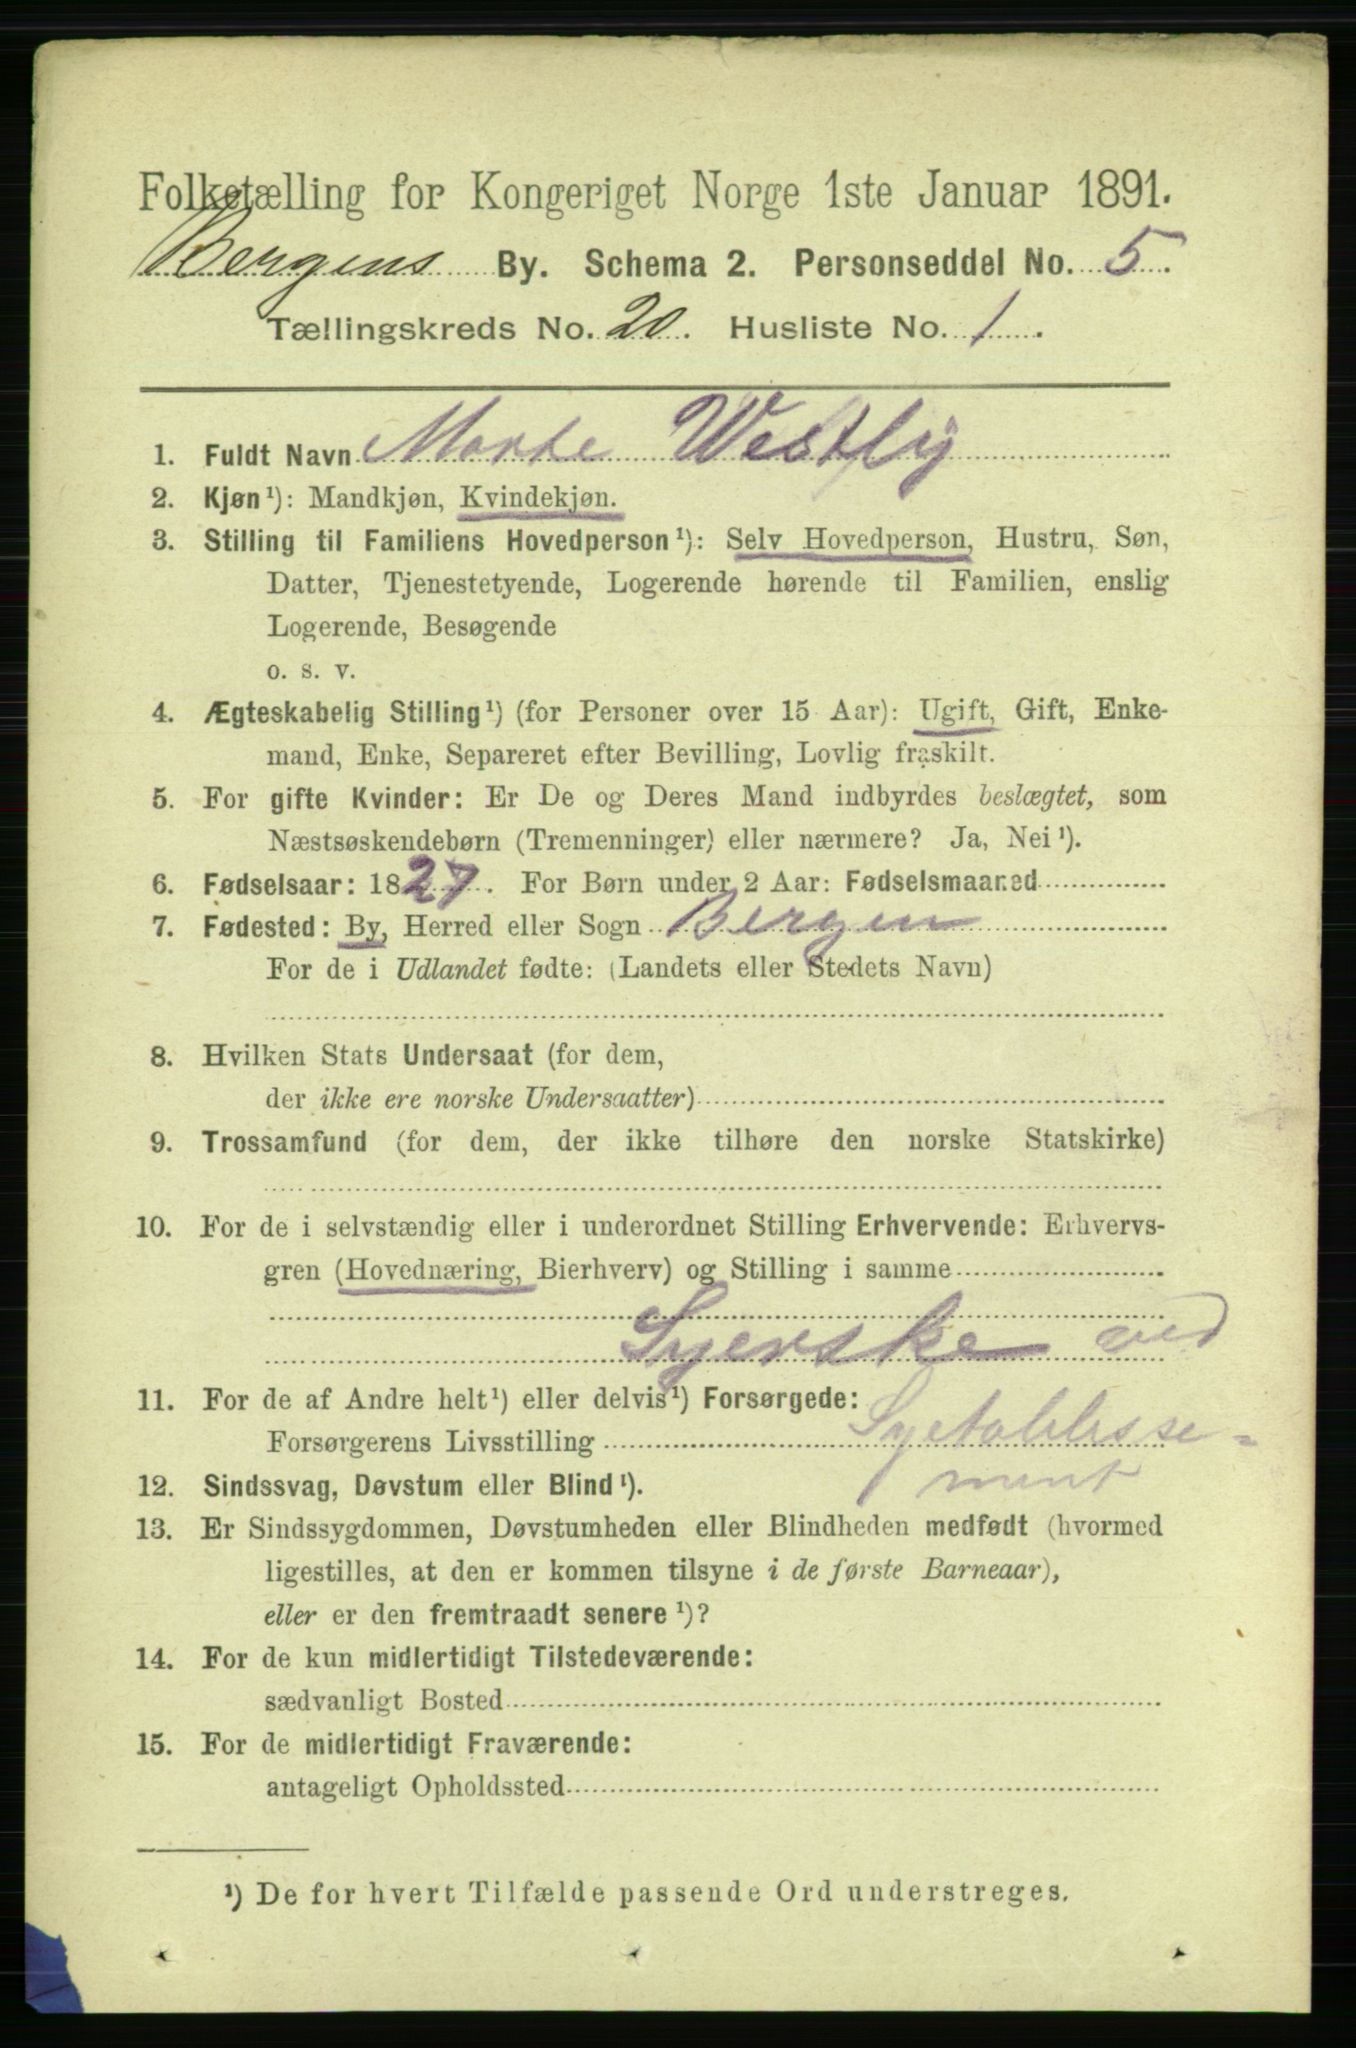 Folketælling for Kongeriget Norge 1ste Januar 1891.
Bergens By. Schema 2. Personseddel No. 5.
Tællingskreds No. 20. Husliste No. 1.
1. Fuldt Navn Marte Westly
2. Kjøn¹): Mandkjøn, Kvindekjøn.
3. Stilling til Familiens Hovedperson¹): Selv Hovedperson, Hustru, Søn,
Datter, Tjenestetyende, Logerende hørende til Familien, enslig
Logerende, Besøgende
o. s. v.
4. Ægteskabelig Stilling¹) (for Personer over 15 Aar): Ugift, Gift, Enke-
mand, Enke, Separeret efter Bevilling, Lovlig fraskilt.
5. For gifte Kvinder: Er De og Deres Mand indbyrdes beslægtet, som
Næstsøskendebørn (Tremenninger) eller nærmere? Ja, Nei¹).
6. Fødselsaar: 1827. For Børn under 2 Aar: Fødselsmaaned
7. Fødested: By, Herred eller Sogn Bergen
For de i Udlandet fødte: (Landets eller Stedets Navn)
8. Hvilken Stats Undersaat (for dem,
der ikke ere norske Undersaatter)
9. Trossamfund (for dem, der ikke tilhøre den norske Statskirke)
10. For de i selvstændig eller i underordnet Stilling Erhvervende: Erhvervs-
gren (Hovednæring, Bierhverv) og Stilling i samme
Syerske ved
11. For de af Andre helt¹) eller delvis¹) Forsørgede:
Forsørgerens Livsstilling Syetablisse-
ment
12. Sindssvag, Døvstum eller Blind¹).
13. Er Sindssygdommen, Døvstumheden eller Blindheden medfødt (hvormed
ligestilles, at den er kommen tilsyne i de første Barneaar),
eller er den fremtraadt senere¹)?
14. For de kun midlertidigt Tilstedeværende:
sædvanligt Bosted
15. For de midlertidigt Fraværende:
antageligt Opholdssted
¹) De for hvert Tilfælde passende Ord understreges.